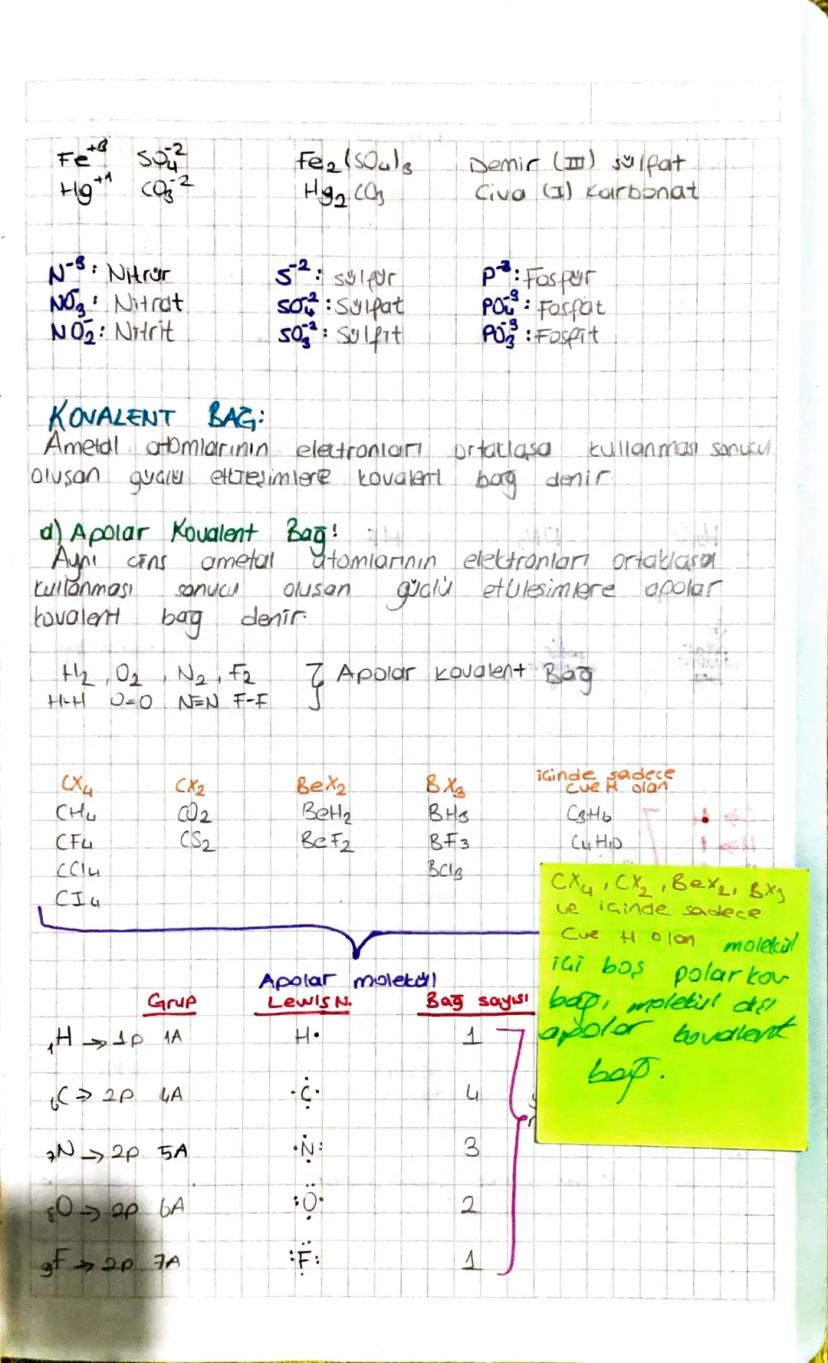 Fe⁺³ SO₄⁻² Fe₂(SO₄)₃ Demir (III) sülfat
Hg⁺¹ CO₃⁻² Hg₂CO₃ Civa (I) Karbonat
N⁻³: Nitrür S⁻²: sülfür P⁻³: Fosfür
NO₃⁻: Nitrat SO₄⁻²: Sülfat PO₄⁻³: Fosfat
NO₂⁻: Nitrit SO₃⁻²: Sülfit PO₃⁻³: Fosfit
KOVALENT BAĞ:
Ametal atomlarının elektronları ortaklaşa kullanması sonucu
oluşan güçlü etkileşimlere kovalent bağ denir
a) Apolar Kovalent Bağ:
Aynı cins ametal atomlarının elektronları ortaklaşa
kullanması sonucu oluşan güçlü etkileşimlere apolar
kovalent bağ denir.
H₂, O₂, N₂, F₂ } Apolar kovalent Bağ
H-H O=O N≡N F-F
CX₄ CX₂ BeX₂ BX₃ içinde sadece
C ve H olan
CH₄ CO₂ BeH₂ BH₃ C₃H₆
CF₄ CS₂ BeF₂ BF₃ C₄H₁₀
CCl₄ BCl₃
CI₄
CX₄, CX₂, BeX₂, BX₃
ve içinde sadece
C ve H olan molekül
içi boş polar kov
bağ, molekül dışı
apolar kovalent
bağ.
Apolar molekül
Grup Lewis N. Bağ sayısı
₁H → 1p 1A H· 1
₆C → 2p 4A ·C· 4
₇N → 2p 5A ·N: 3
₈O → 2p 6A :O· 2
₉F → 2p 7A :F: 1